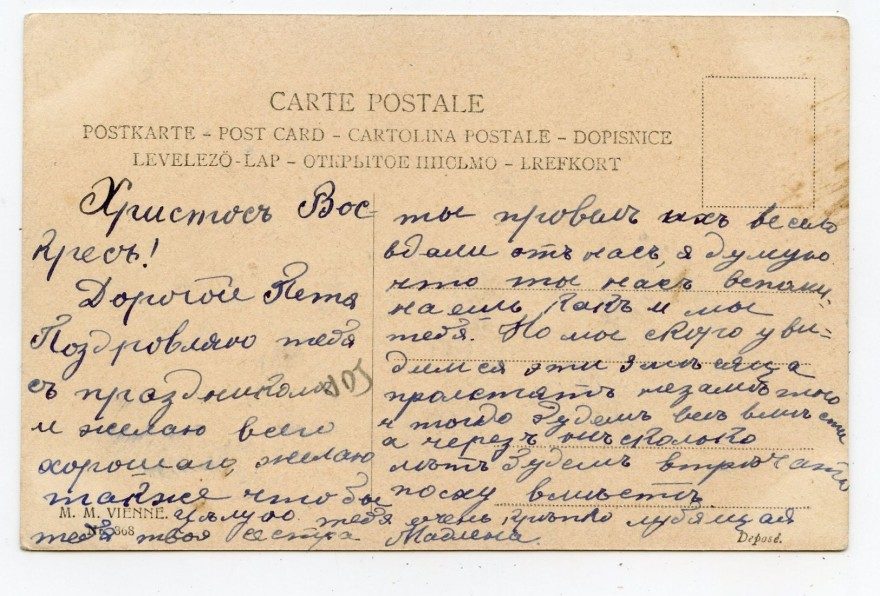 CARTE POSTALE
POSTKARTE – POST CARD – CARTOLINA POSTALE – DOPISNICE
LEVELEZÖ-LAP – ОТКРЫТОЕ ПИСЬМО – BREFKORT
Христосъ Вос-
кресъ!
Дорогой Петя
Поздровляю тебя
съ праздникомъ
и желаю всего
хорошаго, желаю
также чтобы
ты провелъ ихъ весело
вдали отъ насъ, я думаю
что ты насъ вспоми-
наешь какъ и мы
тебя. Но мы скоро уви-
димся эти 3 мѣсяца
пролетятъ незамѣтно
и тогда будемъ всѣ вмѣстѣ
а черезъ нѣсколько
лѣтъ будемъ встрѣчать
пасху вмѣстѣ
Цѣлую тебя очень крѣпко любящая
тебя твоя сестра Мадлена.
M. M. VIENNE.
Nr. 368
Deposé.